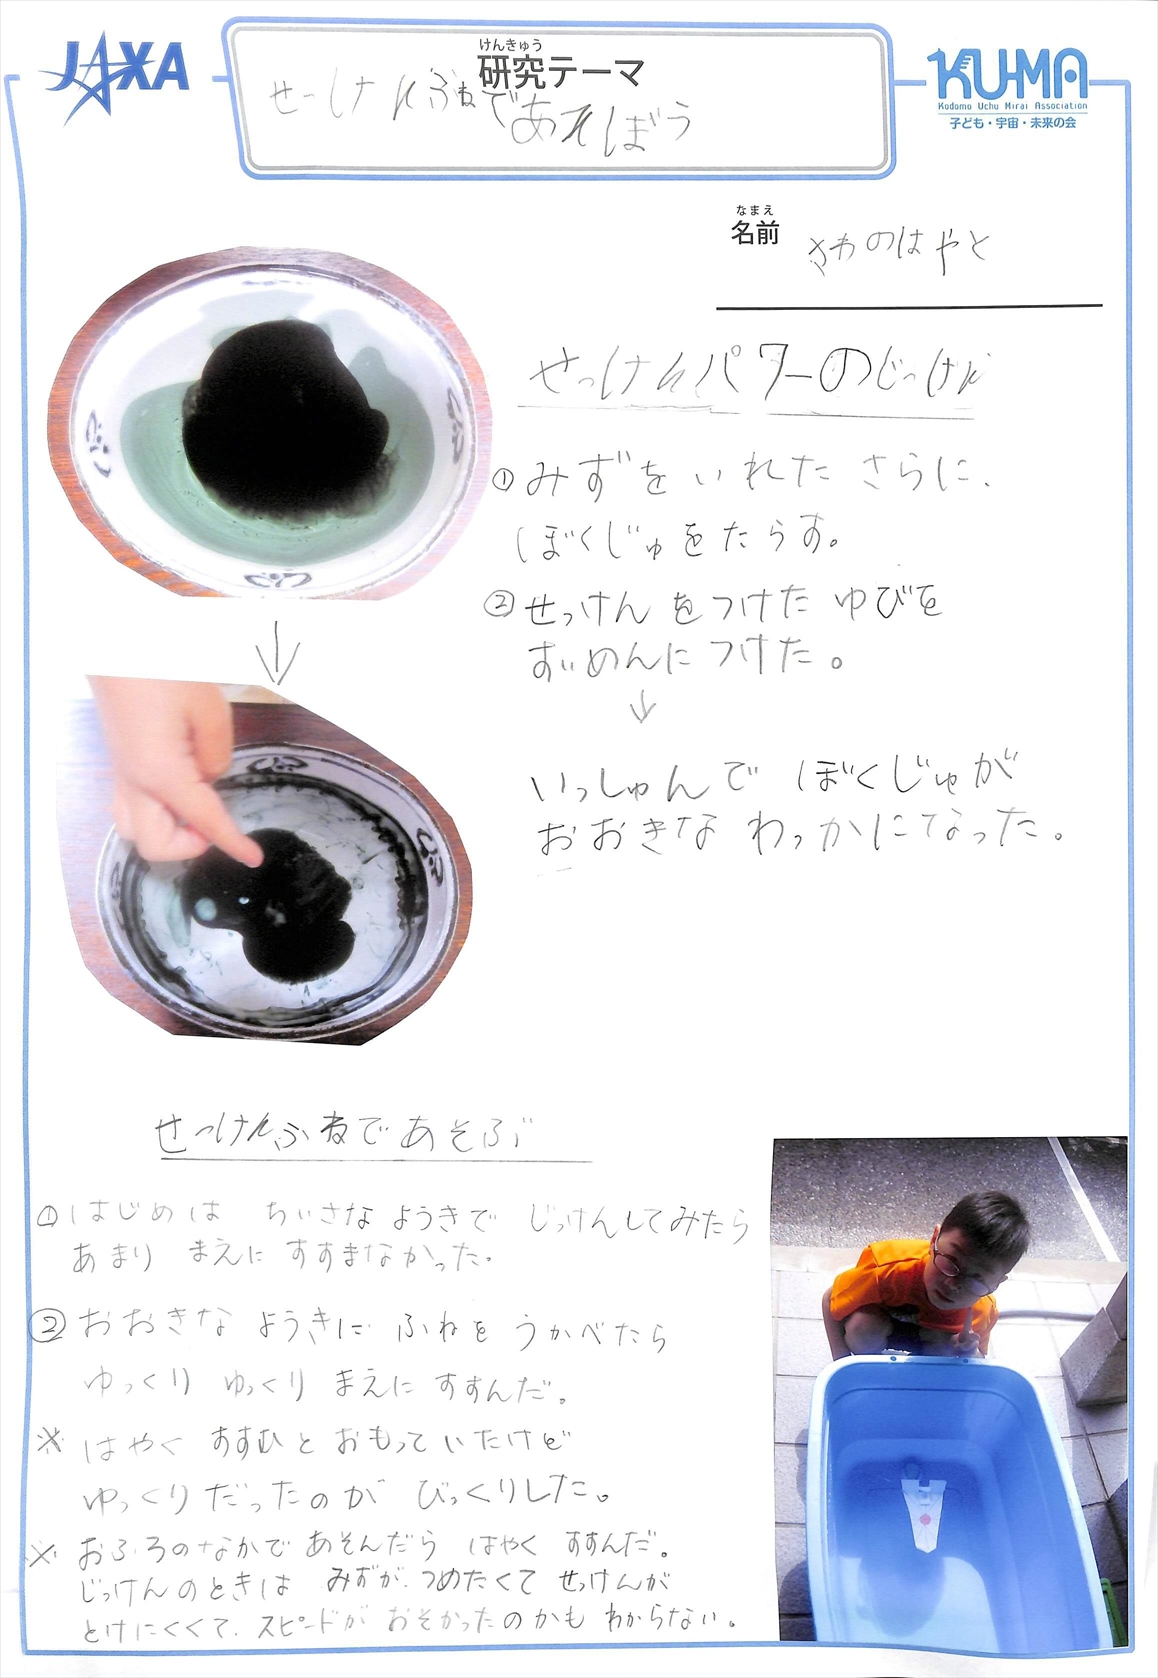 JAXA
けんきゅう
研究テーマ
せっけんふねであそぼう
KU-MA
Kodomo Uchu Mirai Association
子ども・宇宙・未来の会
なまえ
名前
さわのはやと
せっけんパワーのじっけん
① みずをいれた さらに、
ぼくじゅをたらす。
② せっけん をつけた ゆびを
すいめんに つけた。
↓
いっしゅんで ぼくじゅが
おおきな わっかになった。
せっけんふねであそぶ
① はじめは ちいさな ようきで じっけんしてみたら
あまり まえに すすまなかった。
② おおきな ようきに ふねを うかべたら
ゆっくり ゆっくり まえに すすんだ。
※ はやく すすむと おもっていたけど
ゆっくりだったのが びっくりした。
※ おふろのなかで あそんだら はやく すすんだ。
じっけんのときは みずが、つめたくて せっけんが
とけにくくて、スピードが おそかったのかも わからない。